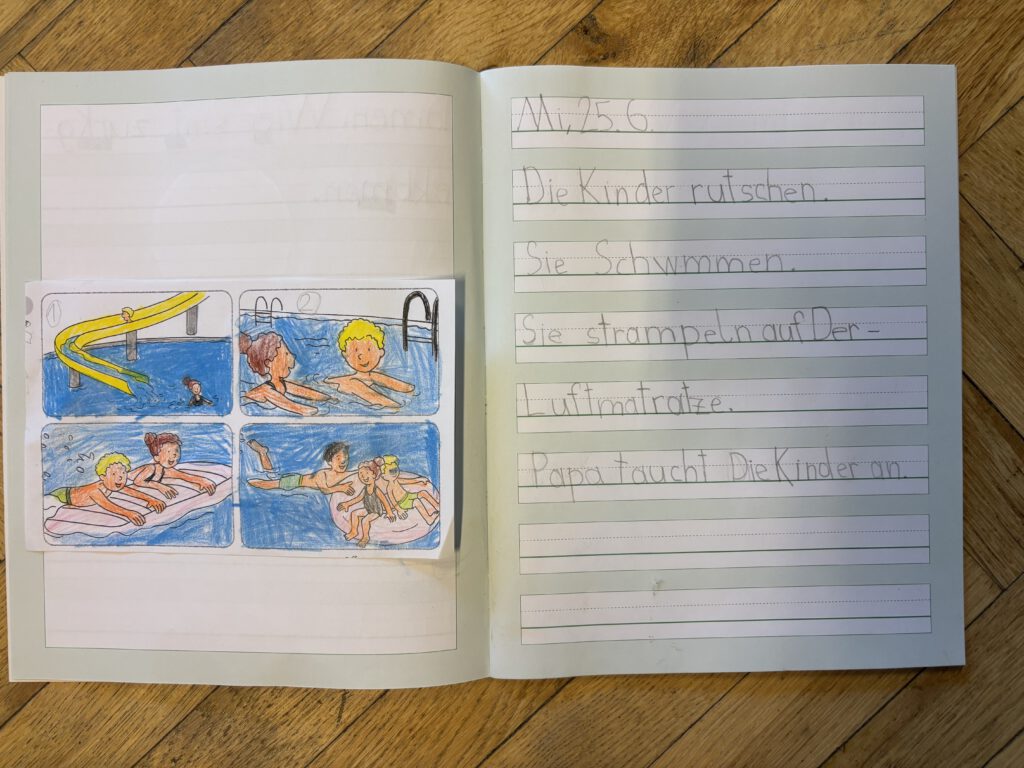 1
2
Mi, 25. 6.
Die Kinder rutschen.
Sie Schwmmen.
Sie strampeln auf Der-
Luftmatratze.
Papa taucht Die Kinder an.